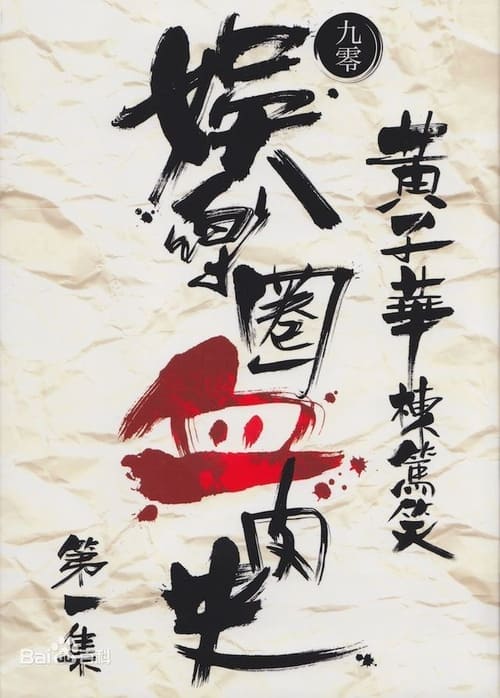 九零
黃子華棟篤笑
娛樂圈血肉史
第一集
Bai百科